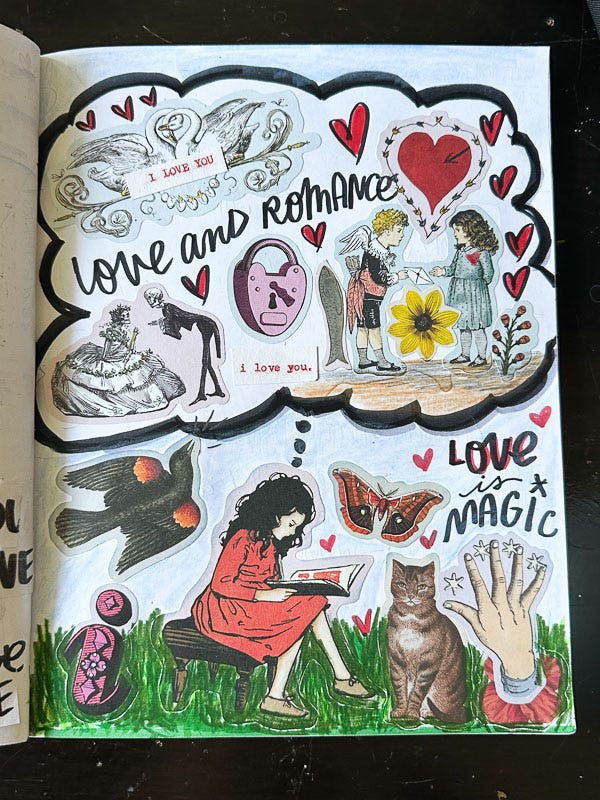 I LOVE YOU
LOVE and ROMANCE
i love you.
LOVE
is
MAGIC
i